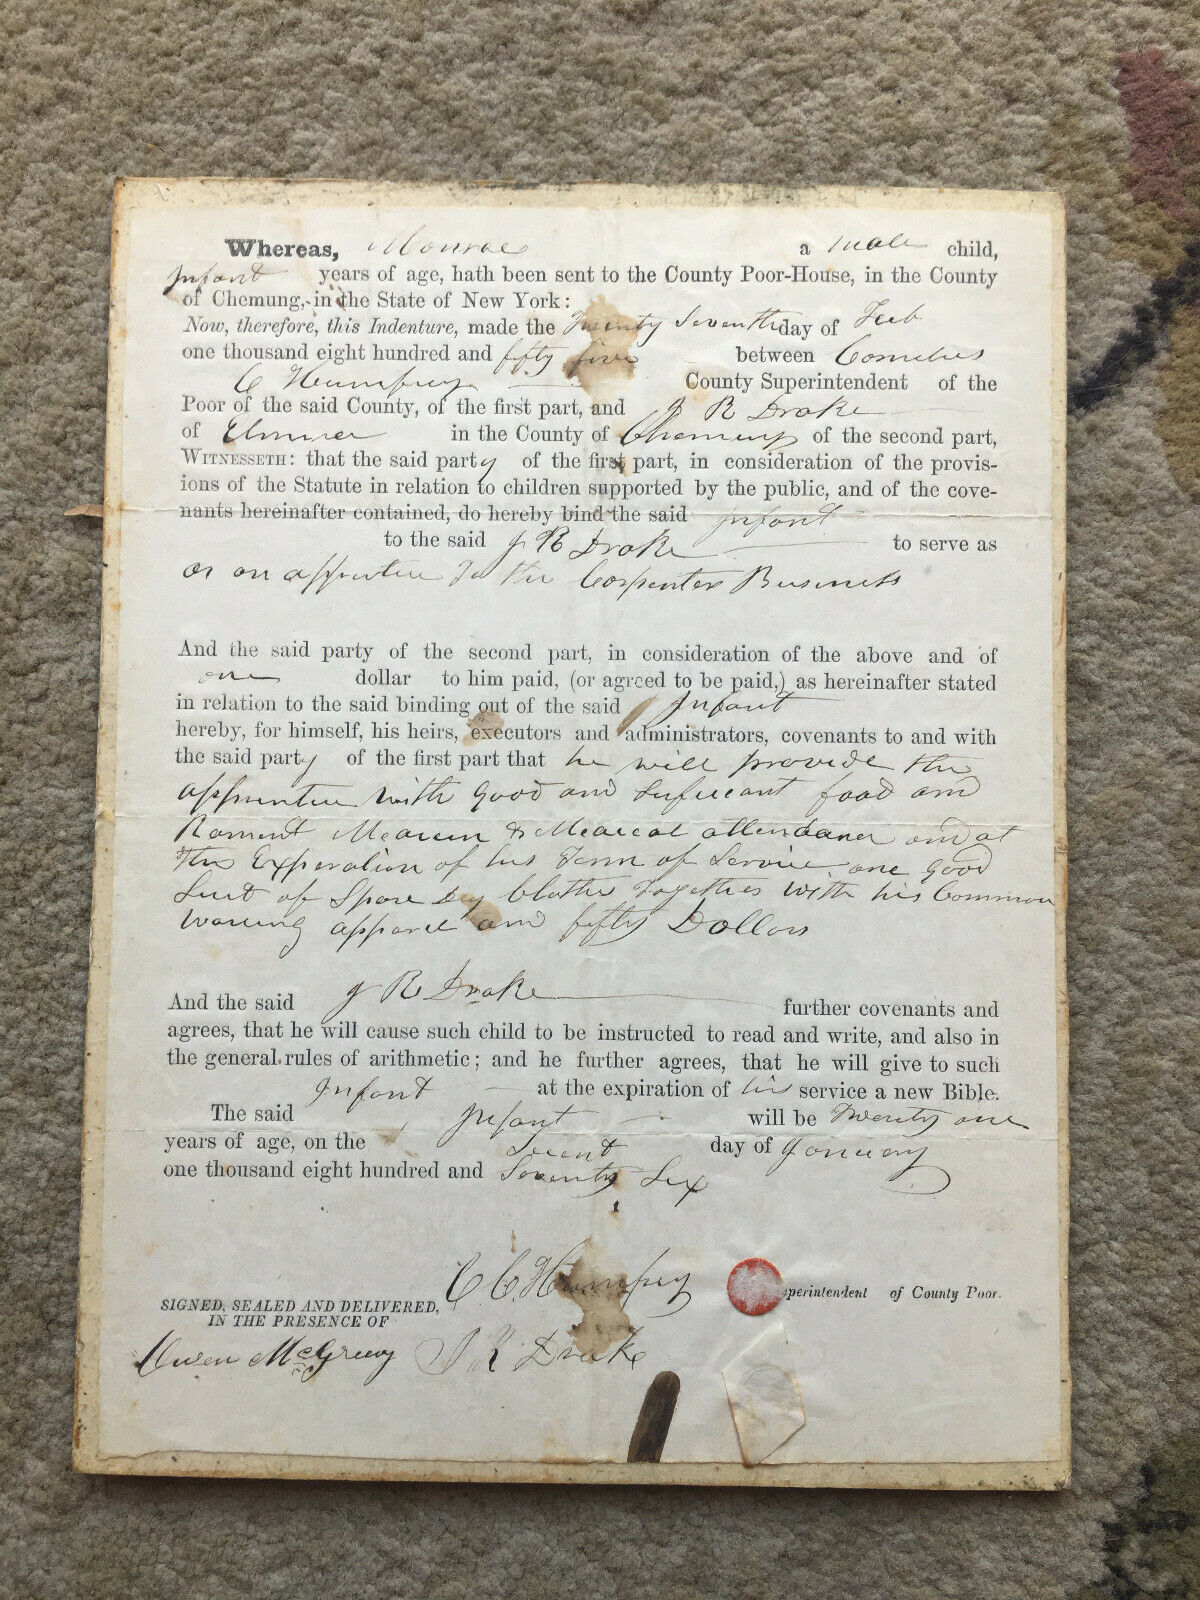 Whereas, Monroe a male child,
Infant years of age, hath been sent to the County Poor-House, in the County
of Chemung, in the State of New York:
Now, therefore, this Indenture, made the Twenty Seventh day of Feb
one thousand eight hundred and fifty five between Cornelius
C Humfrey County Superintendent of the
Poor of the said County, of the first part, and J R Drake
of Elmira in the County of Chemung of the second part,
WITNESSETH: that the said party of the first part, in consideration of the provis-
ions of the Statute in relation to children supported by the public, and of the cove-
nants hereinafter contained, do hereby bind the said Infant
to the said J R Drake to serve as
as an apprentice to the Carpenter Business
And the said party of the second part, in consideration of the above and of
one dollar to him paid, (or agreed to be paid,) as hereinafter stated
in relation to the said binding out of the said Infant
hereby, for himself, his heirs, executors and administrators, covenants to and with
the said party of the first part that he will provide the
apprentice with good and suficeant food and
Rament & Medical attendance and at
the Experation of his Term of Service one Good
Suit of Clothes Together with his Common
waring apparel and fifty Dollars
And the said J R Drake further covenants and
agrees, that he will cause such child to be instructed to read and write, and also in
the general rules of arithmetic; and he further agrees, that he will give to such
Infant at the expiration of his service a new Bible.
The said Infant will be Twenty one
years of age, on the day of January
one thousand eight hundred and Seventy Six
C C. Humfrey perintendent of County Poor.
SIGNED, SEALED AND DELIVERED,
IN THE PRESENCE OF
Owen McGreevy J R Drake